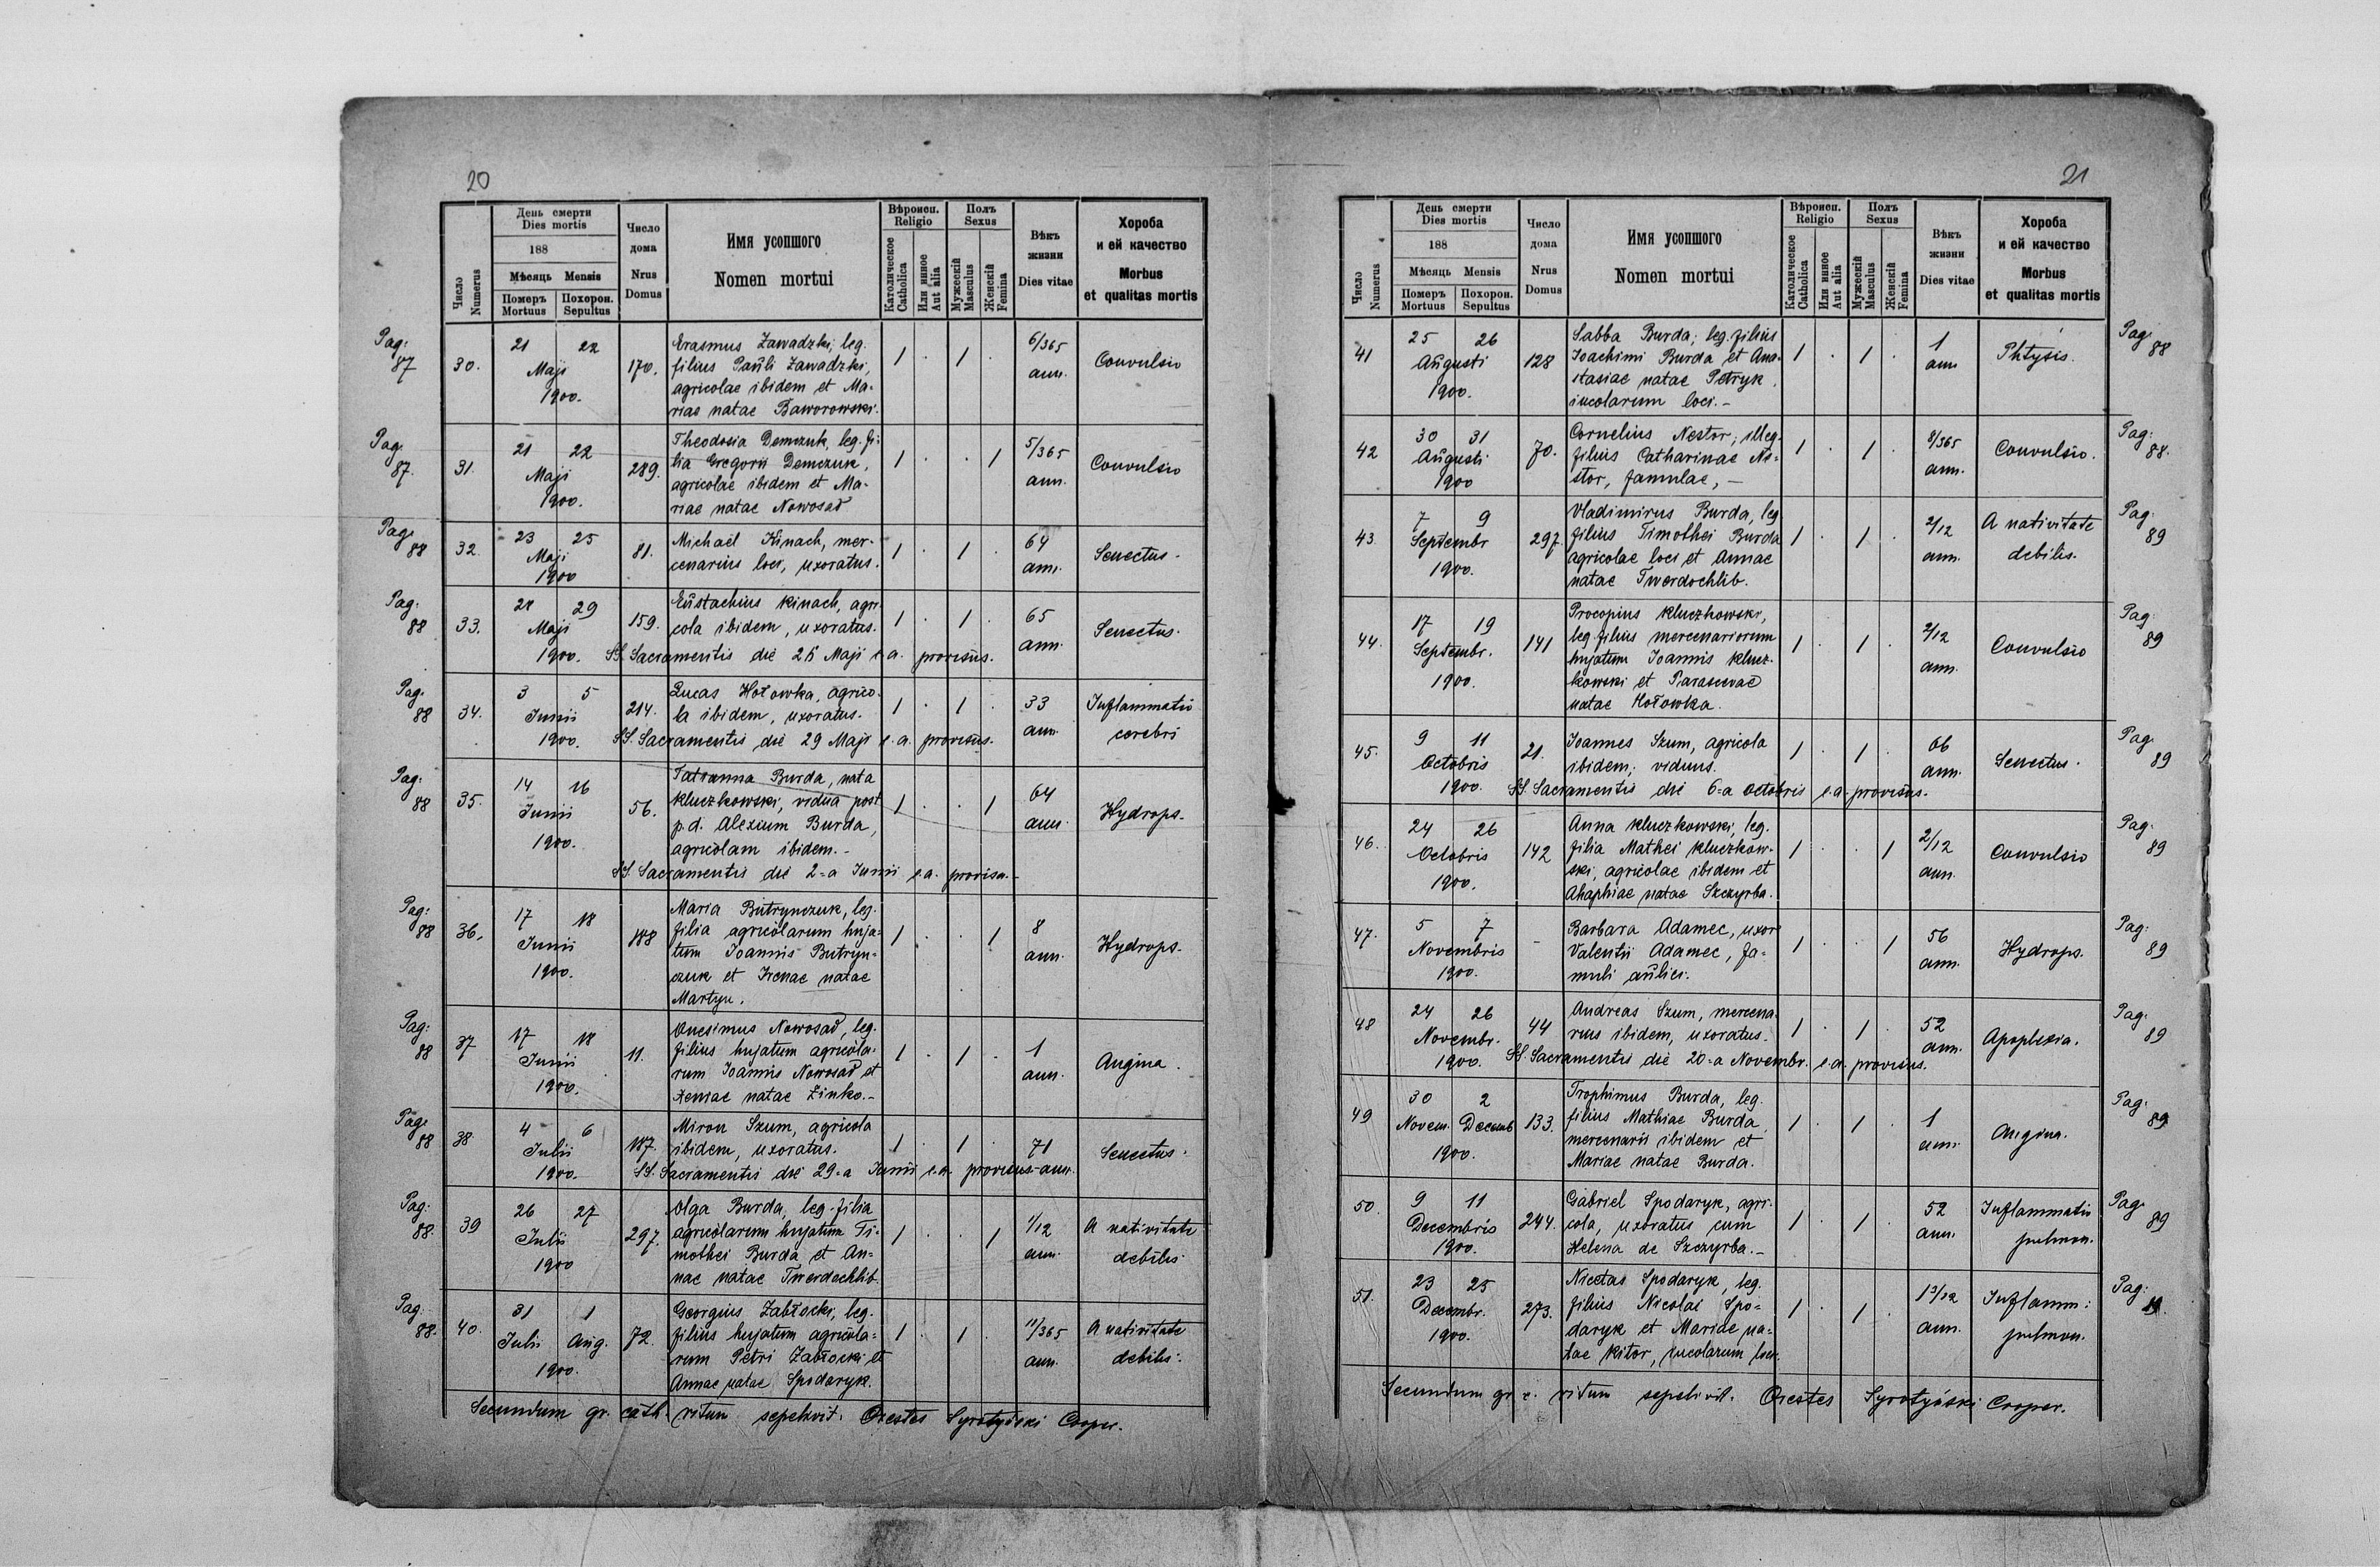 20
Число
Numerus
День смерти
Dies mortis
188
Мѣсяць Mensis
Померъ Похорон.
Mortuus Sepultus
Число
дома
Nrus
Domus
Имя усопшого
Nomen mortui
Вѣроисп.
Religio
Католическое
Catholica
Или инное
Aut alia
Полъ
Sexus
Мужескій
Masculus
Женскій
Femina
Вѣкъ
жизни
Dies vitae
Хороба
и ей качество
Morbus
et qualitas mortis
Pag:
87
30.
21 22
Maji
1900.
170.
Erasmus Zawadzki, leg.
filius Pauli Zawadzki,
agricolae ibidem et Ma-
riae natae Baworowski.
1 . 1 .
6/365
ann.
Convulsio
Pag.
87.
31.
21 22
Maji
1900.
289.
Theodosia Demczuk, leg. fi-
lia Gregorii Demczuk,
agricolae ibidem et Ma-
riae natae Nowosad
1 . . 1
5/365
ann.
Convulsio
Pag.
88
32.
23 25
Maji
1900
81.
Michaël Kinach, mer-
cenarius loci, uxoratus.
1 . 1 .
64
ann.
Senectus.
Pag:
88
33.
29
Maji
1900.
159.
Eustachius Kinach, agri-
cola ibidem, uxoratus.
SS. Sacramentis die Maji e.a. provisus.
1 . 1 .
65
ann.
Senectus.
Pag.
88
34.
3 5
Junii
1900.
214.
Lucas Hołowka, agrico-
la ibidem, uxoratus.
SS. Sacramentis die 29 Maji e.a. provisus.
1 . 1 .
33
ann.
Inflammatio
cerebri
Pag:
88
35.
14 16
Junii
1900.
56.
Tatianna Burda, nata
Kluczkowski, vidua post
p.d. Alexium Burda,
agricolam ibidem.-
SS. Sacramentis die 2-a Junii e.a. provisa.-
1 . . 1
64
ann.
Hydrops.
Pag:
88
36.
17 18
Junii
1900.
188
Maria Butrynczuk, leg.
filia agricolarum huja-
tum Joannis Butryn-
czuk et Irenae natae
Martyn.
1 . . 1
8
ann.
Hydrops.
Pag:
88
37
17 18
Junii
1900.
11.
Onesimus Nowosad, leg.
filius hujatum agricola-
rum Joannis Nowosad et
Xeniae natae Zinko.-
1 . 1 .
1
ann.
Angina.
Pag.
88
38.
4 6
Julii
1900.
187.
Miron Szum, agricola
ibidem, uxoratus.
SS. Sacramentis die 29-a Junii e.a. provisus
1 . 1 .
71
ann.
Senectus.
Pag:
88.
39
26 27
Julii
1900
297.
Olga Burda, leg. filia
agricolarum hujatum Ti-
mothei Burda et An-
nae natae Twerdochlib.
1 . . 1
1/12
ann.
A nativitate
debilis
Pag:
88.
40.
31 1
Julii Aug.
1900.
72.
Georgius Zabłocki, leg.
filius hujatum agricola-
rum Petri Zabłocki et
Annae natae Spodaryk.
1 . 1 .
11/365
ann.
A nativitate
debilis.
Secundum gr. cath. ritum sepelivit. Orestes Syrotyński Cooper.
21
Число
Numerus
День смерти
Dies mortis
188
Мѣсяць Mensis
Померъ Похорон.
Mortuus Sepultus
Число
дома
Nrus
Domus
Имя усопшого
Nomen mortui
Вѣроисп.
Religio
Католическое
Catholica
Или инное
Aut alia
Полъ
Sexus
Мужескій
Masculus
Женскій
Femina
Вѣкъ
жизни
Dies vitae
Хороба
и ей качество
Morbus
et qualitas mortis
41
25 26
Augusti
1900.
128
Sabba Burda, leg. filius
Joachimi Burda et Ana-
stasiae natae Petryk,
incolarum loci.-
1 . 1 .
1
ann
Phtysis.
Pag.
88
42
30 31
Augusti
1900
70.
Cornelius Nestor, illeg.
filius Catharinae Ne-
stor, famulae,-
1 . 1 .
8/365
ann.
Convulsio.
Pag:
88.
43
7 9
Septembr
1900.
297.
Vladimirus Burda, leg
filius Timothei Burda
agricolae loci et Annae
natae Twerdochlib.
1 . 1 .
2/12
ann.
A nativitate
debilis.
Pag:
89
44.
17 19
Septembr.
1900.
141
Procopius Kluczkowski,
leg. filius mercenariorum
hujatum Joannis Klucz-
kowski et Parascevae
natae Hołowka.
1 . 1 .
2/12
ann.
Convulsio
Pag:
89
45.
9 11
Octobris
1900.
21.
Joannes Szum, agricola
ibidem, viduus.
SS. Sacramentis die 6-a Octobris e.a. provisus.
1 . 1 .
66
ann.
Senectus.
Pag.
89
46.
24 26
Octobris
1900.
142
Anna Kluczkowski, leg.
filia Mathei Kluczkow-
ski, agricolae ibidem et
Ahaphiae natae Szczyrba.
1 . . 1
2/12
ann.
Convulsio
Pag:
89
47.
5 7
Novembris
1900.
-
Barbara Adamec, uxor
Valentii Adamec, fa-
muli aulici.
1 . . 1
56
ann.
Hydrops.
Pag:
89
48
24 26
Novembr.
1900.
44
Andreas Szum, mercena-
rius ibidem, uxoratus.
SS. Sacramentis die 20-a Novembr. e.a. provisus.
1 . 1 .
52
ann.
Apoplexia.
Pag:
89
49
30 2
Novem. Decemb
1900.
133.
Trophimus Burda, leg.
filius Mathiae Burda,
mercenarii ibidem et
Mariae natae Burda.
1 . 1 .
1
ann.
Angina.
Pag.
89
50.
9 11
Decembris
1900.
244.
Gabriel Spodaryk, agri-
cola, uxoratus cum
Helena de Szczyrba.-
1 . 1 .
52
ann.
Inflammatio
pulmon.
Pag.
89
51.
23 25
Decembr.
1900.
273.
Nicetas Spodaryk, leg.
filius Nicolai Spo-
daryk et Mariae na-
tae Kitor, incolarum loci.
1 . 1 .
ann.
Inflamm:
pulmon.
Pag:
Secundum gr. c. ritum sepelivit. Orestes Syrotyński Cooper.